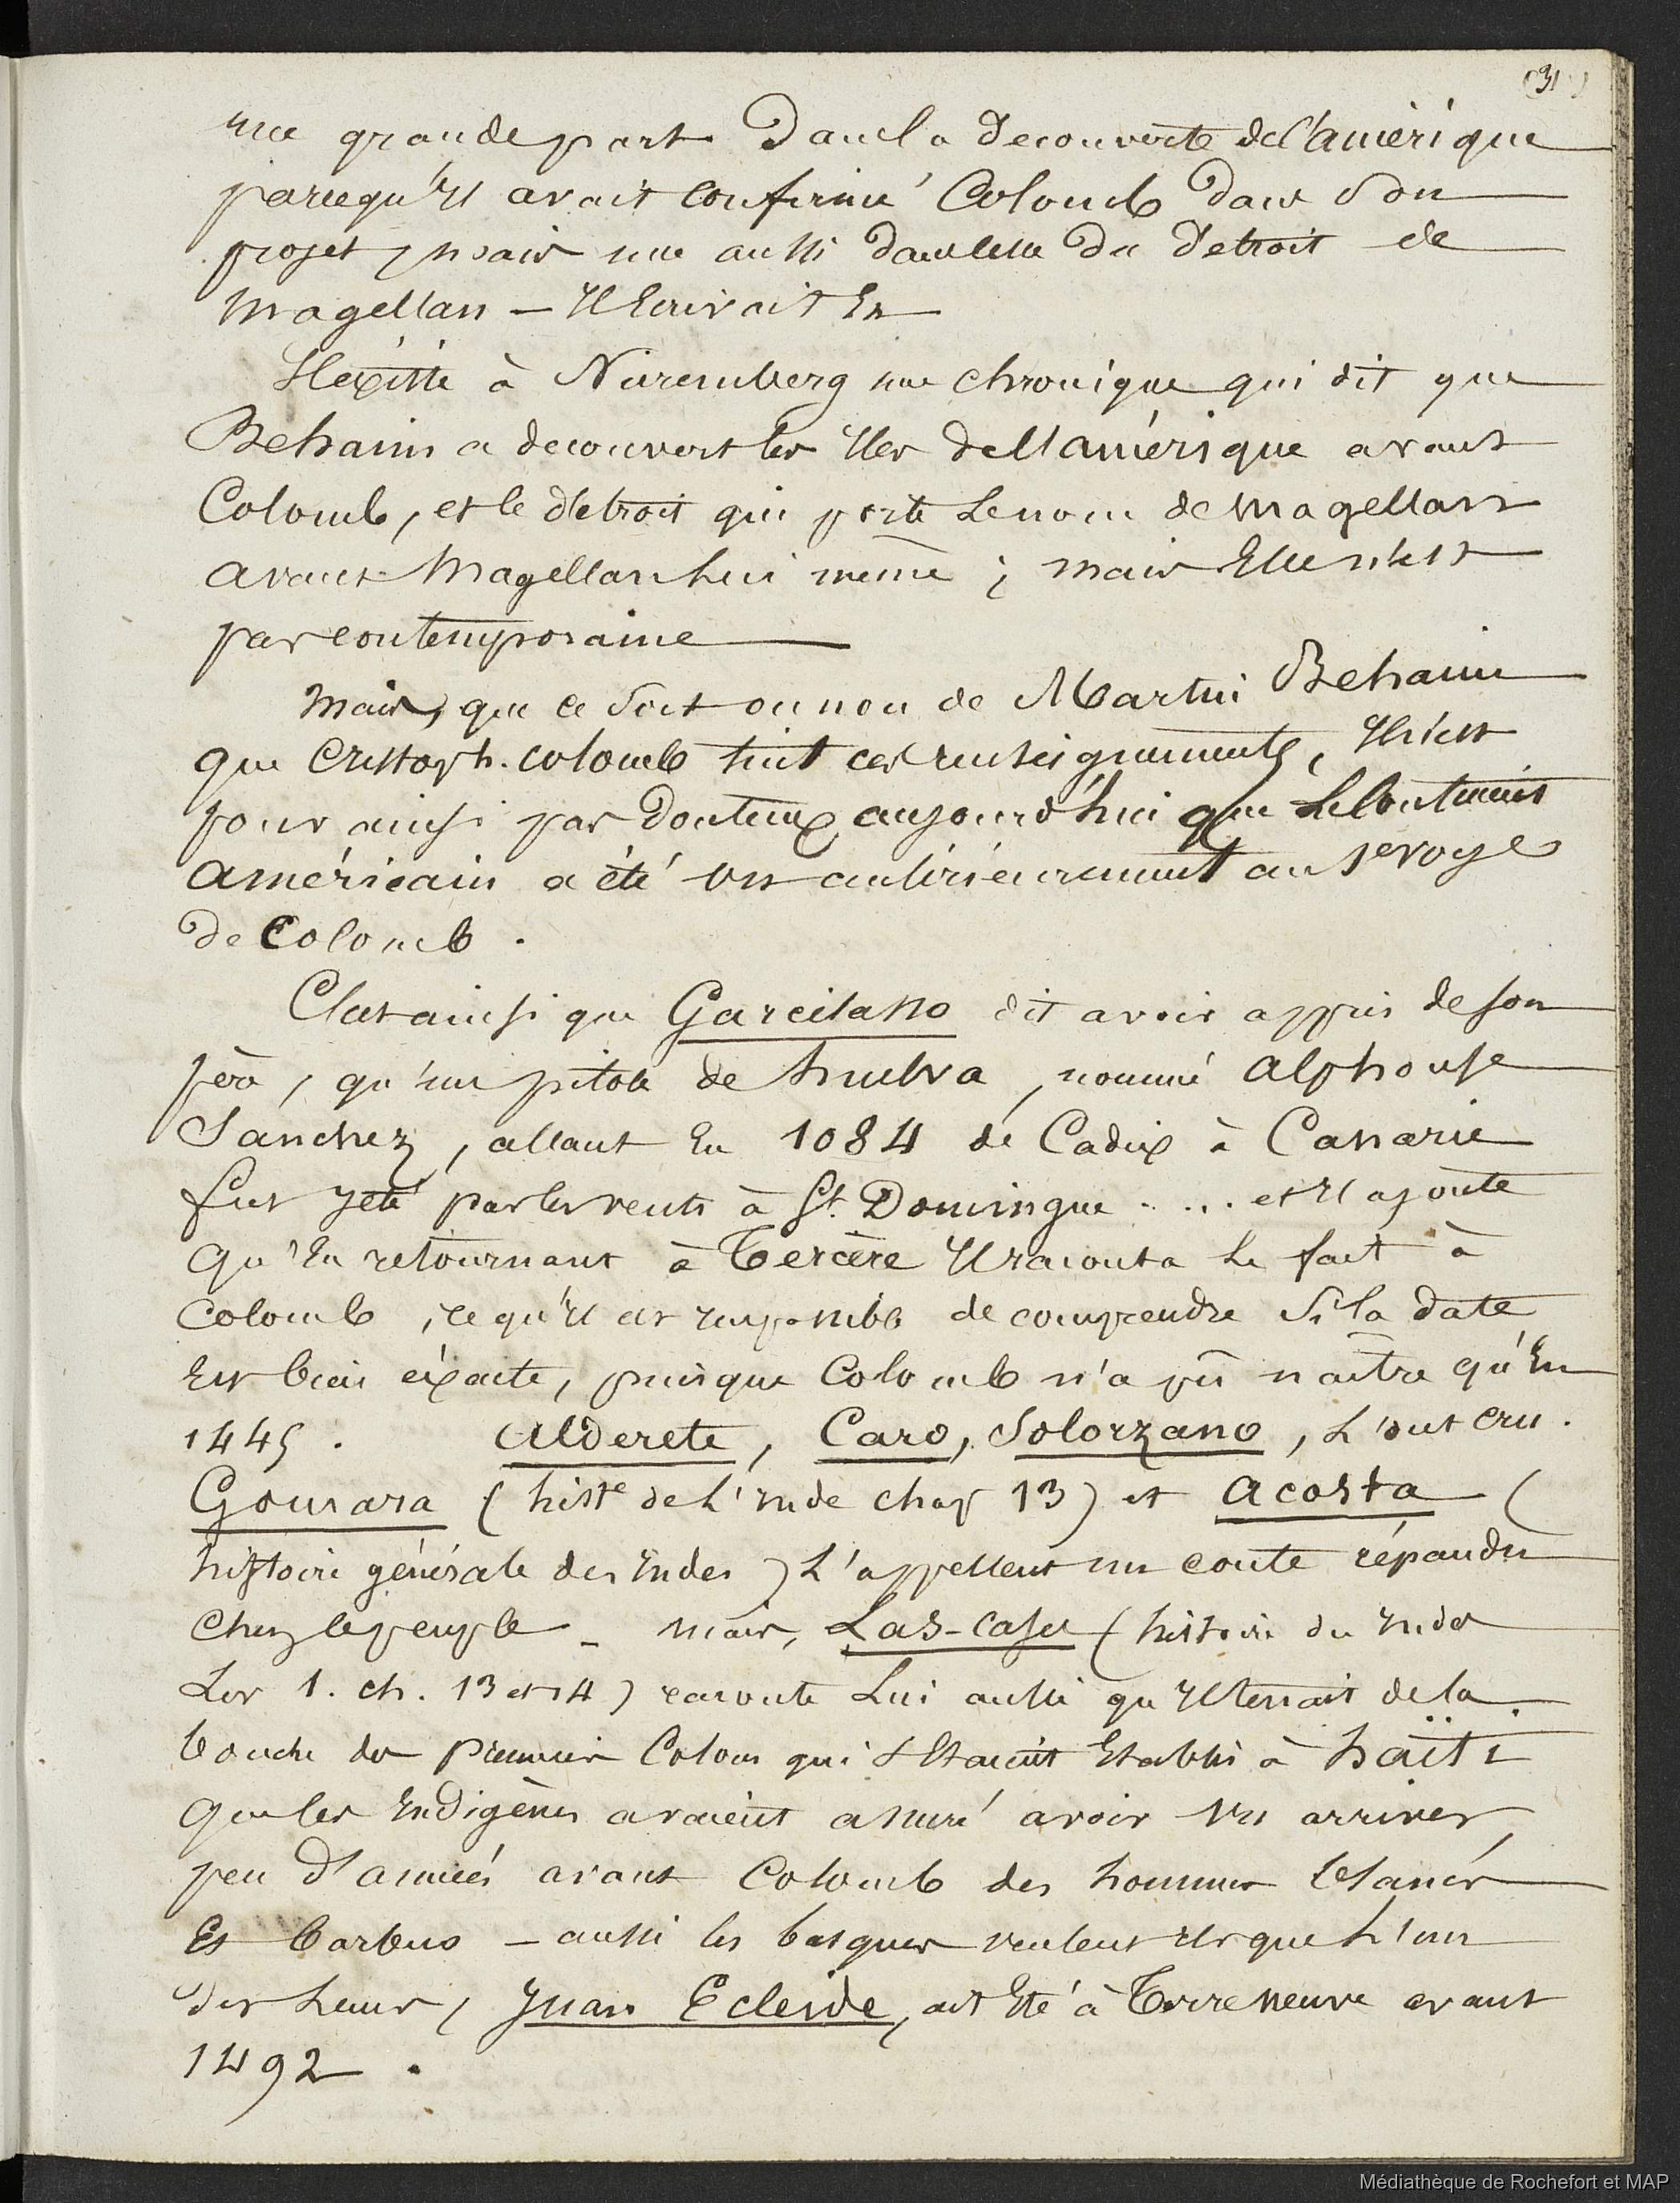 (31)
une grande part dans la decouverte de l'amérique
parcequ'il avait confirmé Colomb dans son
projet, mais une aussi dans celle du détroit de
magellan — Il écrivait en
Il éxiste à Nuremberg une chronique qui dit que
Behaim a decouvert les Iles de l'amérique avant
Colomb, et le détroit qui porte le nom de magellan
avant Magellan lui même ; mais Elle n'est
pas contemporaine
Mais, que ce soit ou non de Martin Behaim
que Cristoph. Colomb tint ces renseignements, Il n'est
pour ainsi pas douteux aujourd'hui que le continent
américain a été vu antérieurement au 1er voyage
de Colomb .
C'est ainsi que Garcilasso dit avoir appris de son
père, qu'un pilote de huelva, nommé alphonse
Sanchez, allant En 1084 de Cadix à Canarie
fut jeté par les vents à St. Domingue .... et Il ajoute
qu'En retournant à Tercère Il raconta le fait à
Colomb, ce qu'Il est Impossible de comprendre si la date
Est bien éxacte, puisque Colomb n'a pû naître qu'En
1445 . Alderete, Caro, Solorzano, L'ont cru.
Gomara (histe de L'Inde chap 13) et acosta (
histoire générale des Indes) L'appellent un conte répandu
chez le peuple – mais, Las-casas (histoire du Indes
Liv 1. ch. 13 et 14) raconte Lui aussi qu'Il tenait de la
bouche des premiers Colons qui s'Etaient Etablis à haïti
que les Indigènes avaient assuré avoir vu arriver,
peu d'années avant Colomb des hommes blancs
Et barbus – aussi les basques veulent Ils que L'un
des Leurs, Juan Ecleide, ait Eté à Terre neuve avant
1492 .
Médiathèque de Rochefort et MAP